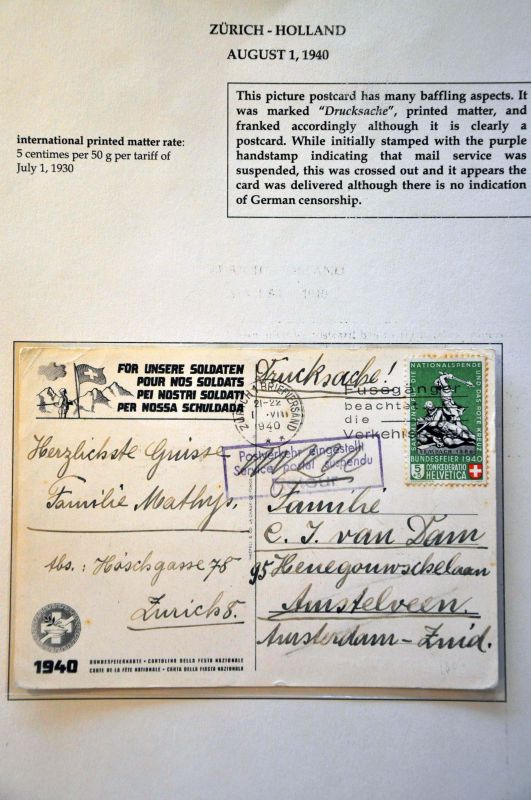 ZÜRICH - HOLLAND
AUGUST 1, 1940
This picture postcard has many baffling aspects. It
was marked "Drucksache", printed matter, and
franked accordingly although it is clearly a
postcard. While initially stamped with the purple
handstamp indicating that mail service was
suspended, this was crossed out and it appears the
card was delivered although there is no indication
of German censorship.
international printed matter rate:
5 centimes per 50 g per tariff of
July 1, 1930
FÜR UNSERE SOLDATEN
POUR NOS SOLDATS
PEI NOSTRI SOLDATI
PER NOSSA SCHULDADA
Drucksache!
ZÜRICH BRIEFVERSAND
1940
Fussgänger
beachte
die
Verkehrs
NATIONALSPENDE
UND DAS ROTE KREUZ
SEMPACH 1386
BUNDESFEIER 1940
5 CONFOEDERATIO
HELVETICA
Postverkehr eingestellt
Service postal suspendu
Herzlichste Grüsse
Familie Mathys.
Abs: Höschgasse 78
Zürich 8.
Familie
C. J. van Dam
95 Henegouwschelaan
Amstelveen.
Amsterdam-Zuid.
1940
BUNDESFEIERKARTE - CARTOLINA DELLA FESTA NAZIONALE
CARTE DE LA FÊTE NATIONALE - CARTA DELLA FIASTA NAZIONALA